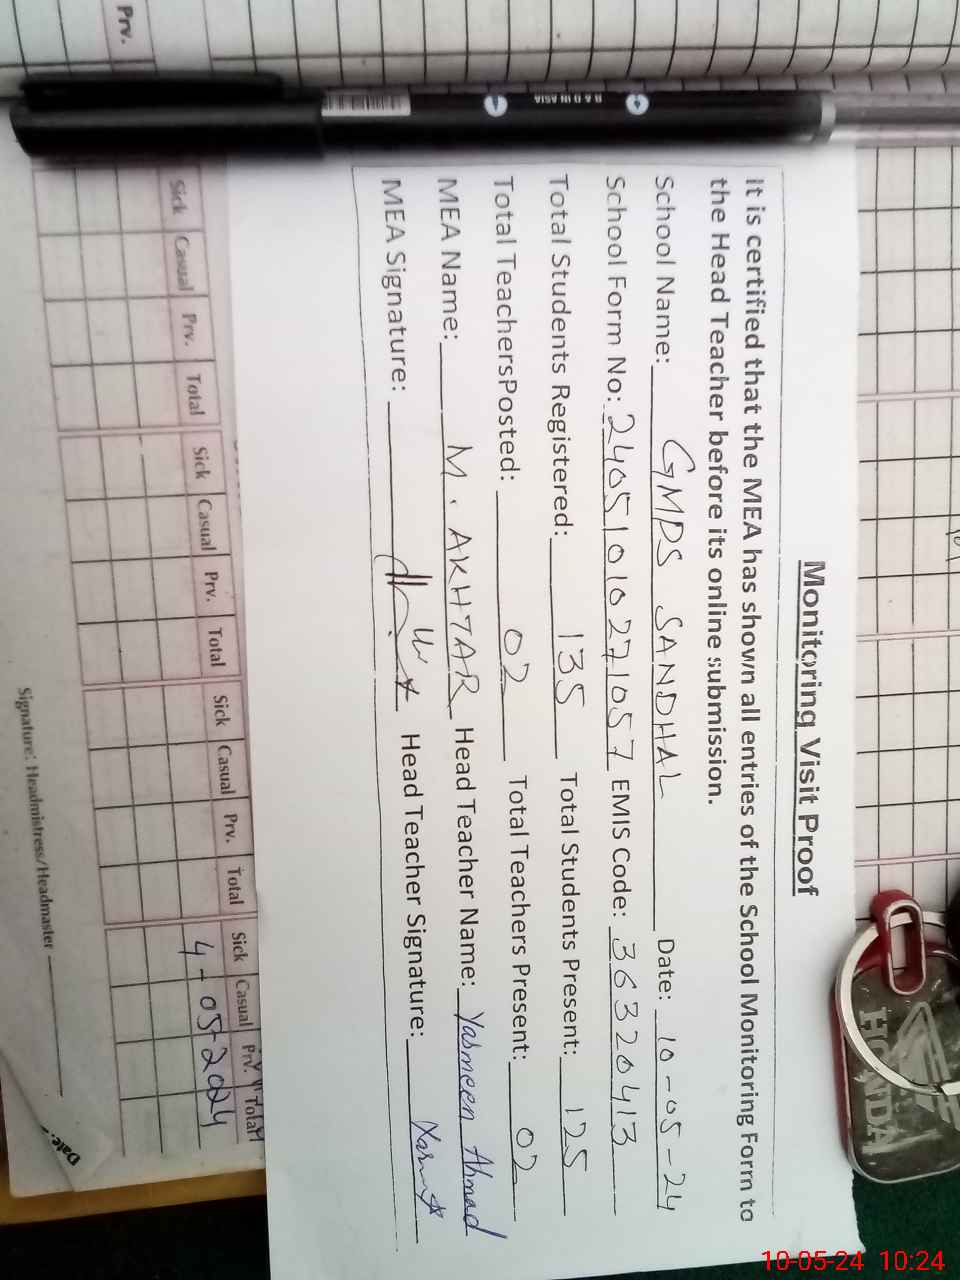 Monitoring Visit Proof
It is certified that the MEA has shown all entries of the School Monitoring Form to
the Head Teacher before its online submission.
School Name: GMPS SANDHAL Date: 10-05-24
School Form No: 24051010271057 EMIS Code: 36320413
Total Students Registered: 135 Total Students Present: 125
Total TeachersPosted: 02 Total Teachers Present: 02
MEA Name: M. AKHTAR Head Teacher Name: Yasmeen Ahmad
MEA Signature: Head Teacher Signature:
Prv.
Sick Casual Prv. Total Sick Casual Prv. Total Sick Casual Prv. Total Sick Casual Prv. Total
4-05-2024
Signature: Headmistress/Headmaster
Date:
HONDA
10-05-24 10:24